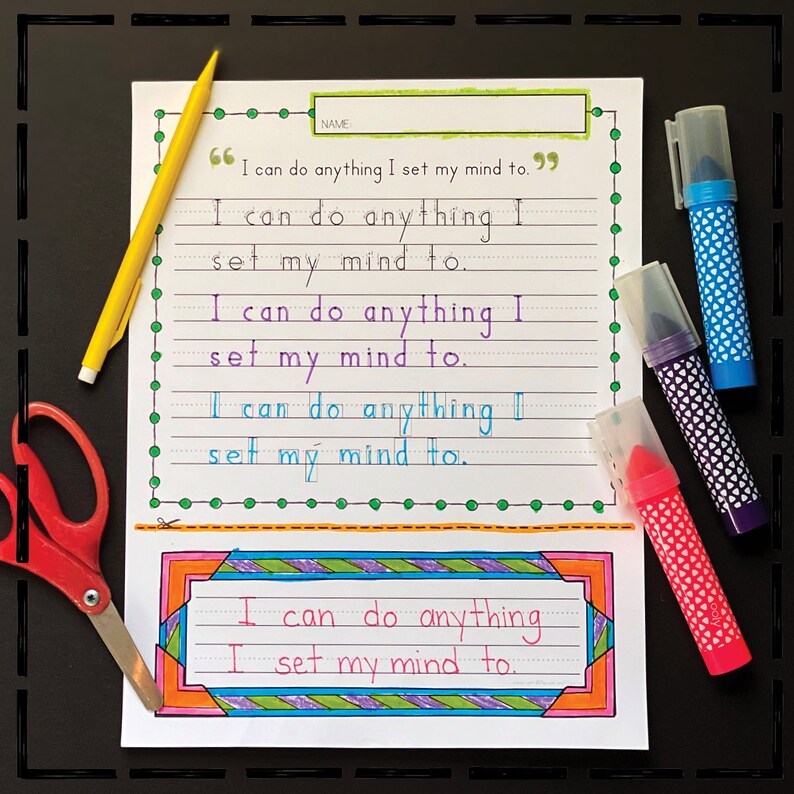 NAME:
“ I can do anything I set my mind to. ”
I can do anything I
set my mind to.
I can do anything I
set my mind to.
I can do anything I
set my mind to.
I can do anything
I set my mind to.
ooly